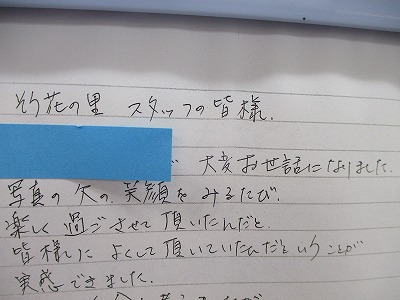 花の里 スタッフの皆様.
大変お世話になりました.
写真の 欠の.笑顔をみるたび.
楽しく 過ごさせて 頂いたんだと.
皆様に よくして 頂いていたんだということが
実感できました.